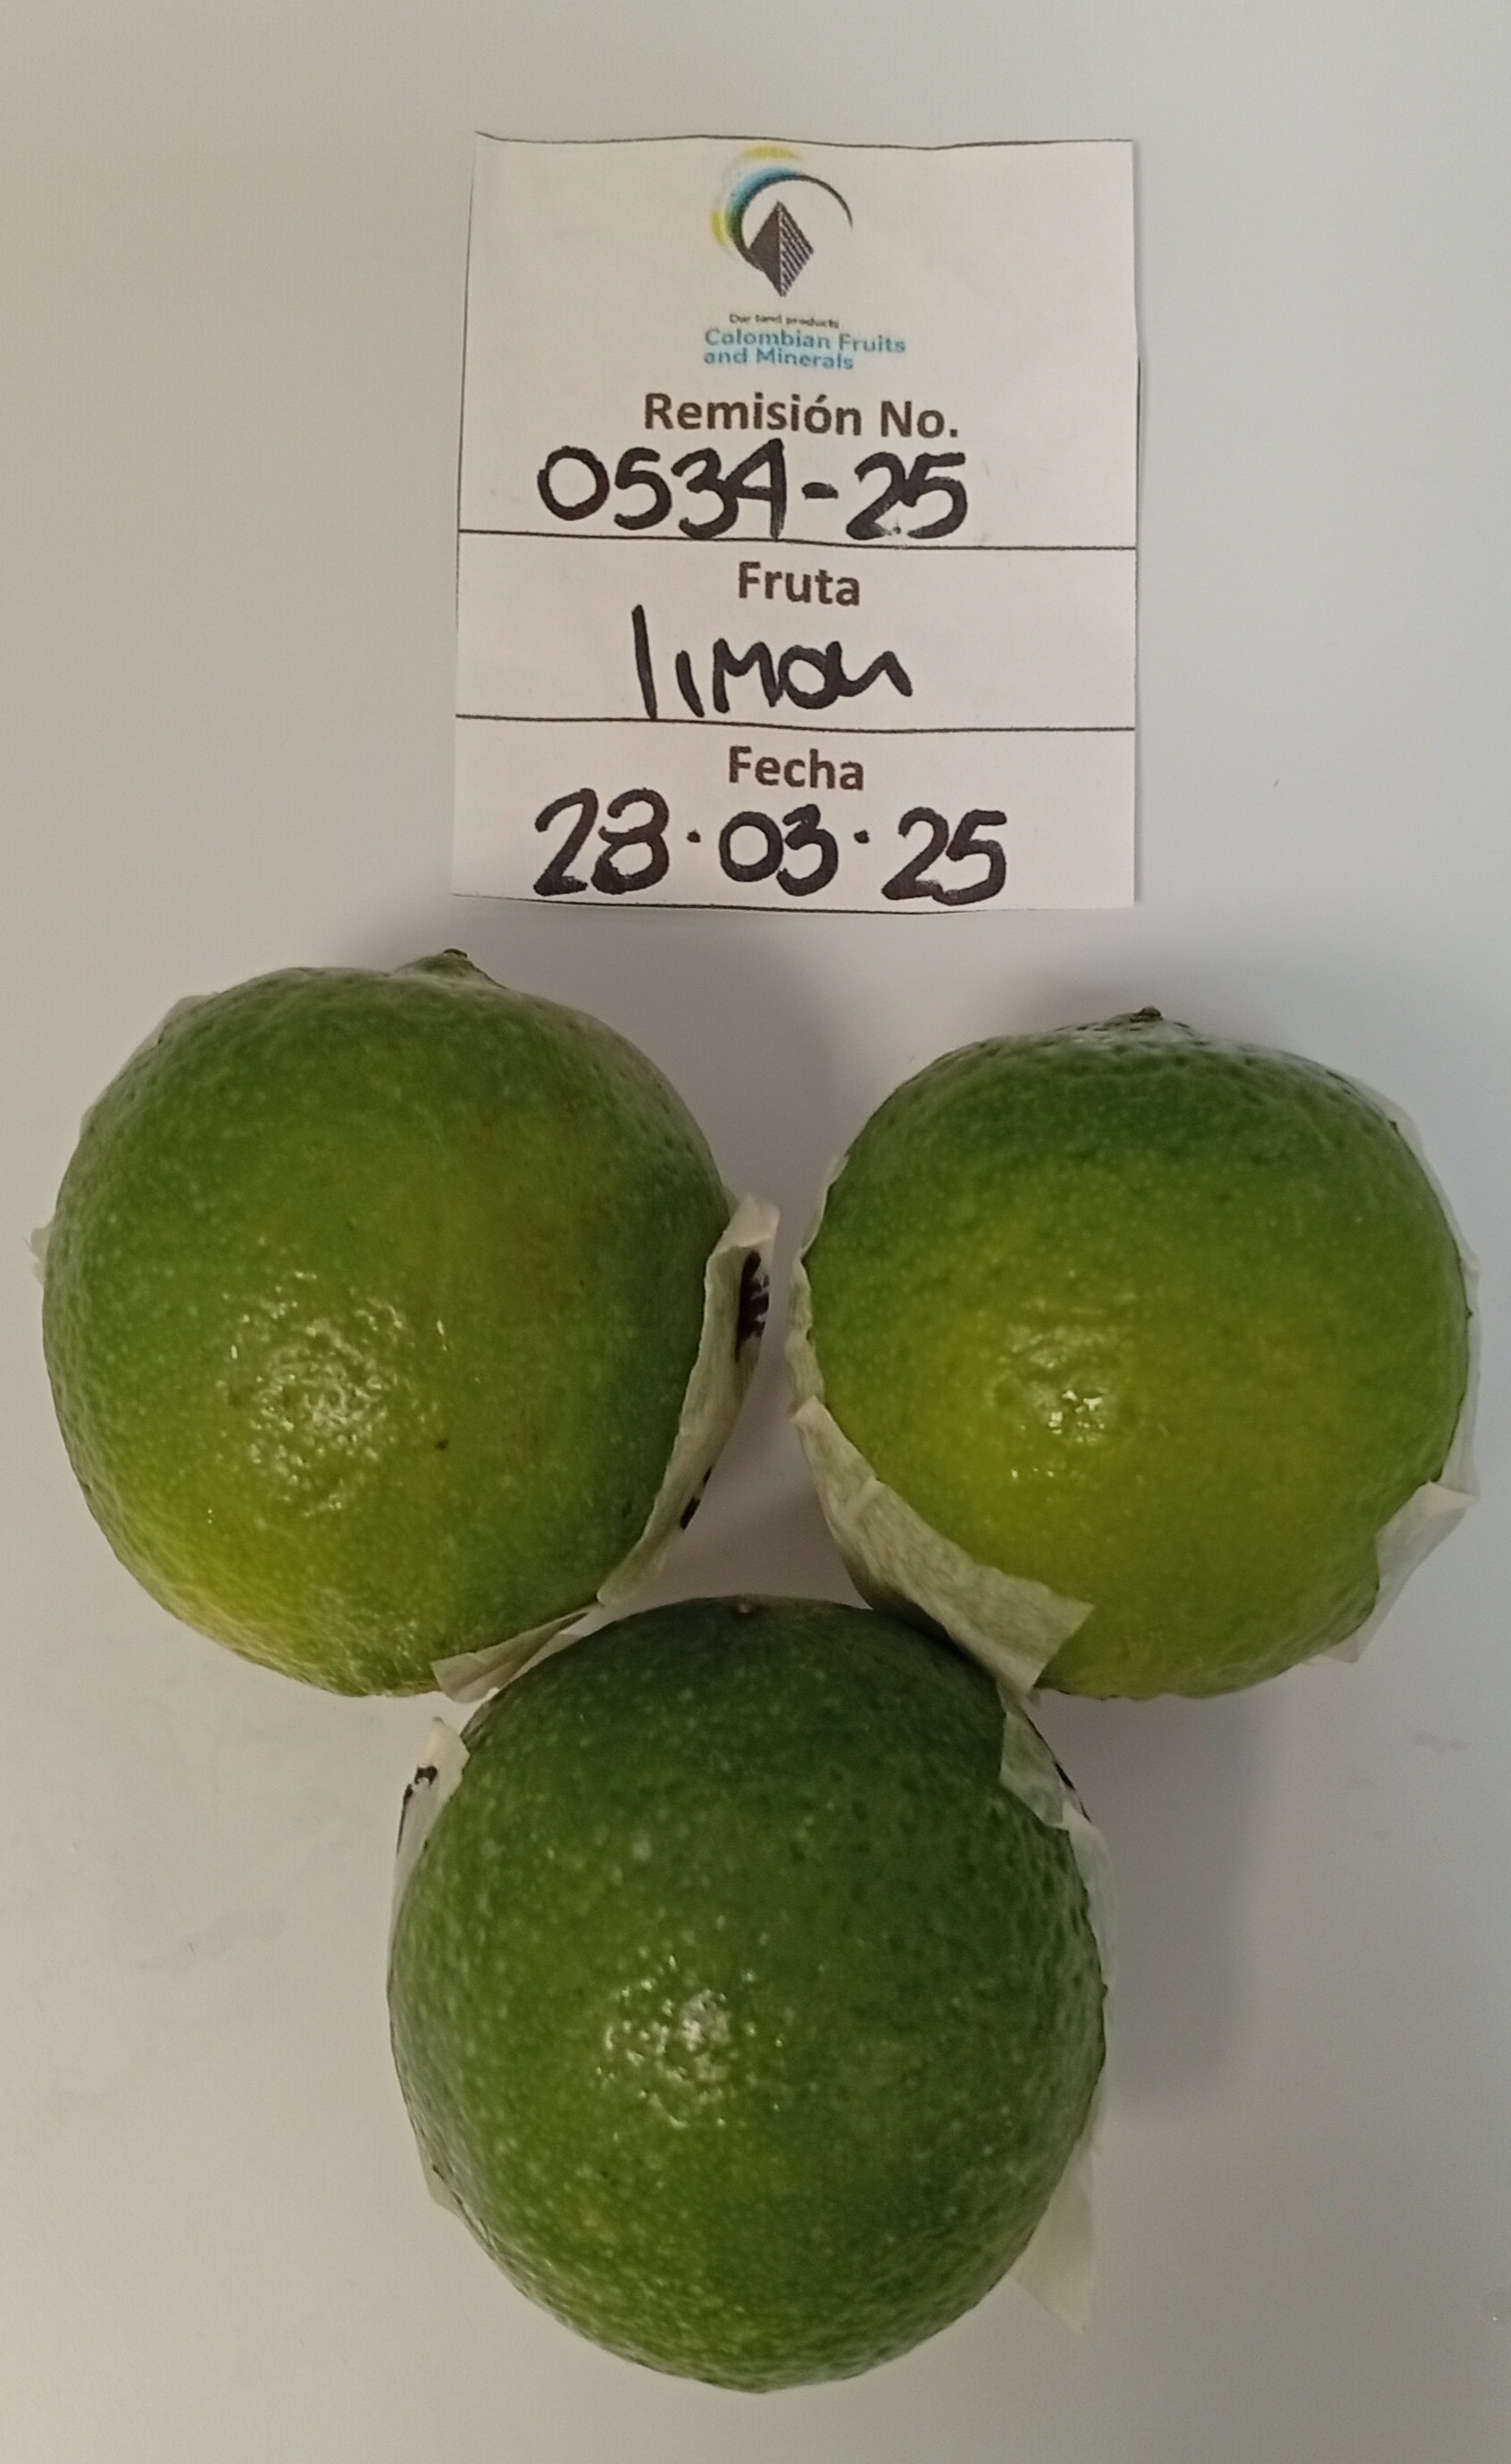 Our land products
Colombian Fruits
and Minerals
Remisión No.
0534-25
Fruta
limon
Fecha
28·03·25